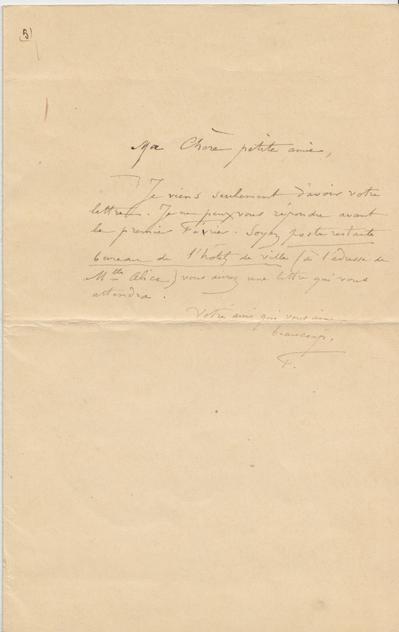 B
Ma Chère petite amie,
Je viens seulement d'avoir votre
lettre. Je ne peux vous répondre avant
le premier Février. Soyez poste restante
bureau de l'hôtel de ville (à l'adresse de
Mlle Alice) vous aurez une lettre qui vous
attendra.
Votre ami qui vous aime
beaucoup,